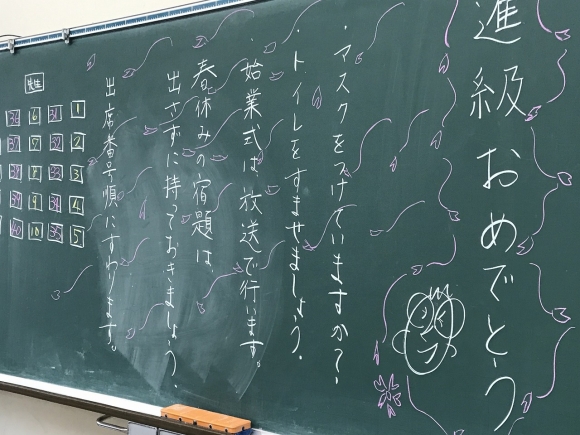 進級おめでとう
・マスクをつけていますか？
・トイレをすませましょう。
・始業式は放送で行います。
春休みの宿題は、
出さずに持っておきましょう。
出席番号順にすわります。
先生
36 6 31 1
37 7 32 2
38 8 33 3
39 9 34 4
40 10 35 5